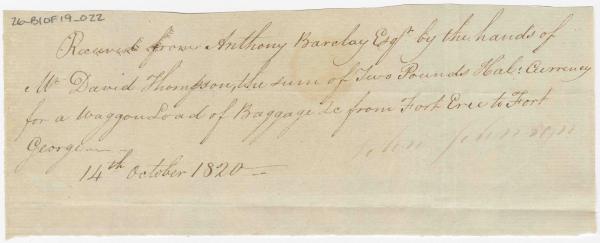 26-B10F19_022
Received from Anthony Barclay Esqr. by the hands of
Mr David Thompson, the sum of Two Pounds Hal: Currency
for a Waggon Load of Baggage &c from Fort Erie to Fort
George —
John Johnson
14th October 1820 —